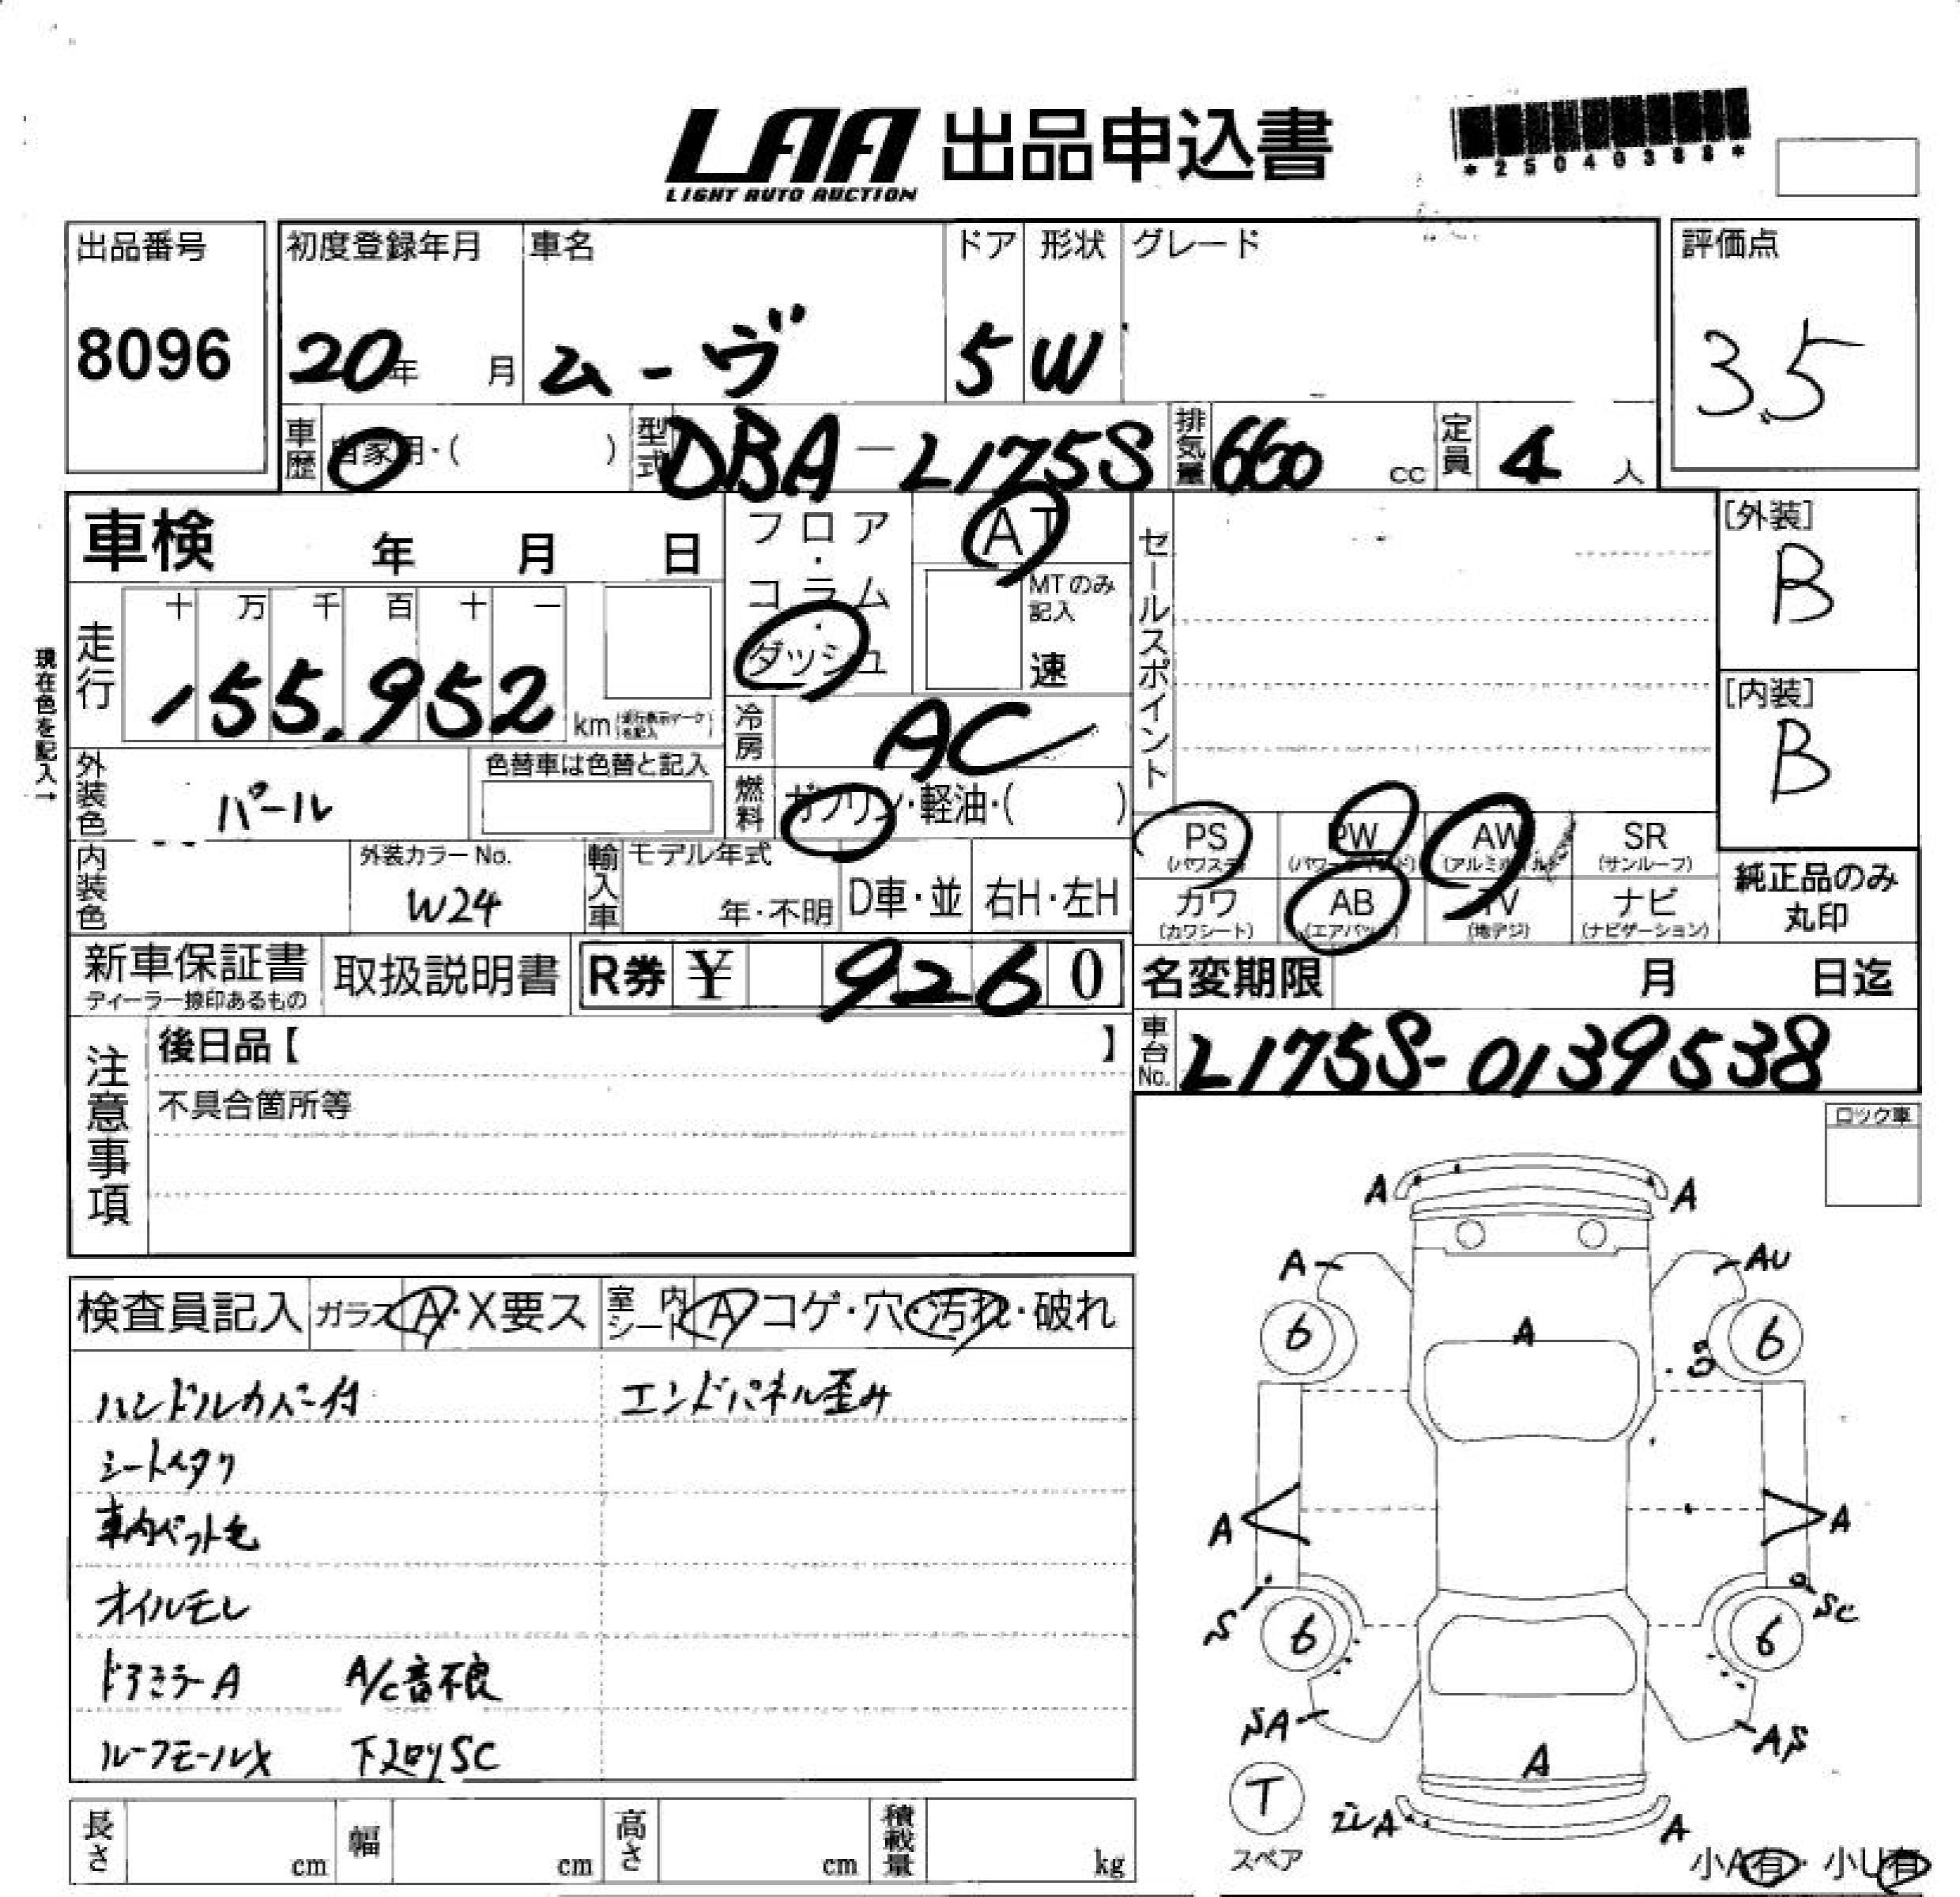 LAA 出品申込書
LIGHT AUTO AUCTION
*25040388*
出品番号
8096
初度登録年月
20年 月
車名
ムーヴ
ドア
5
形状
W
グレード
評価点
3.5
車歴 自家用・( )
型式 DBA-L175S
排気量 660 cc
定員 4 人
車検 年 月 日
フロア・コラム・ダッシュ
AT
MTのみ記入
速
セールスポイント
[外装]
B
[内装]
B
現在色を記入→
走行
十 万 千 百 十 一
155,952 km
冷房 AC
外装色 パール
色替車は色替と記入
燃料 ガソリン・軽油・( )
PS (パワステ)
PW
AW
SR (サンルーフ)
カワ (カワシート)
AB (エアバッグ)
TV (地デジ)
ナビ (ナビゲーション)
純正品のみ丸印
内装色
外装カラーNo.
W24
輸入車
モデル年式
年・不明
D車・並
右H・左H
新車保証書
ディーラー捺印あるもの
取扱説明書
R券 ¥ 9260
名変期限 月 日迄
車台No. L175S-0139538
注意事項
後日品【 】
不具合箇所等
ロック車
検査員記入
ガラス A・X要ス
室内シート A コゲ・穴・汚れ・破れ
ハンドルカバー付
エンドパネル歪み
シートヘタリ
車内ペット毛
オイルモレ
ドアミラーA A/C音不良
ルーフモールX 下回りSC
A A
A AU
6 A 6
A A
S SC
6 6
SA AS
A
T
スペア
A A
小A有・小U有
長さ cm
幅 cm
高さ cm
積載量 kg